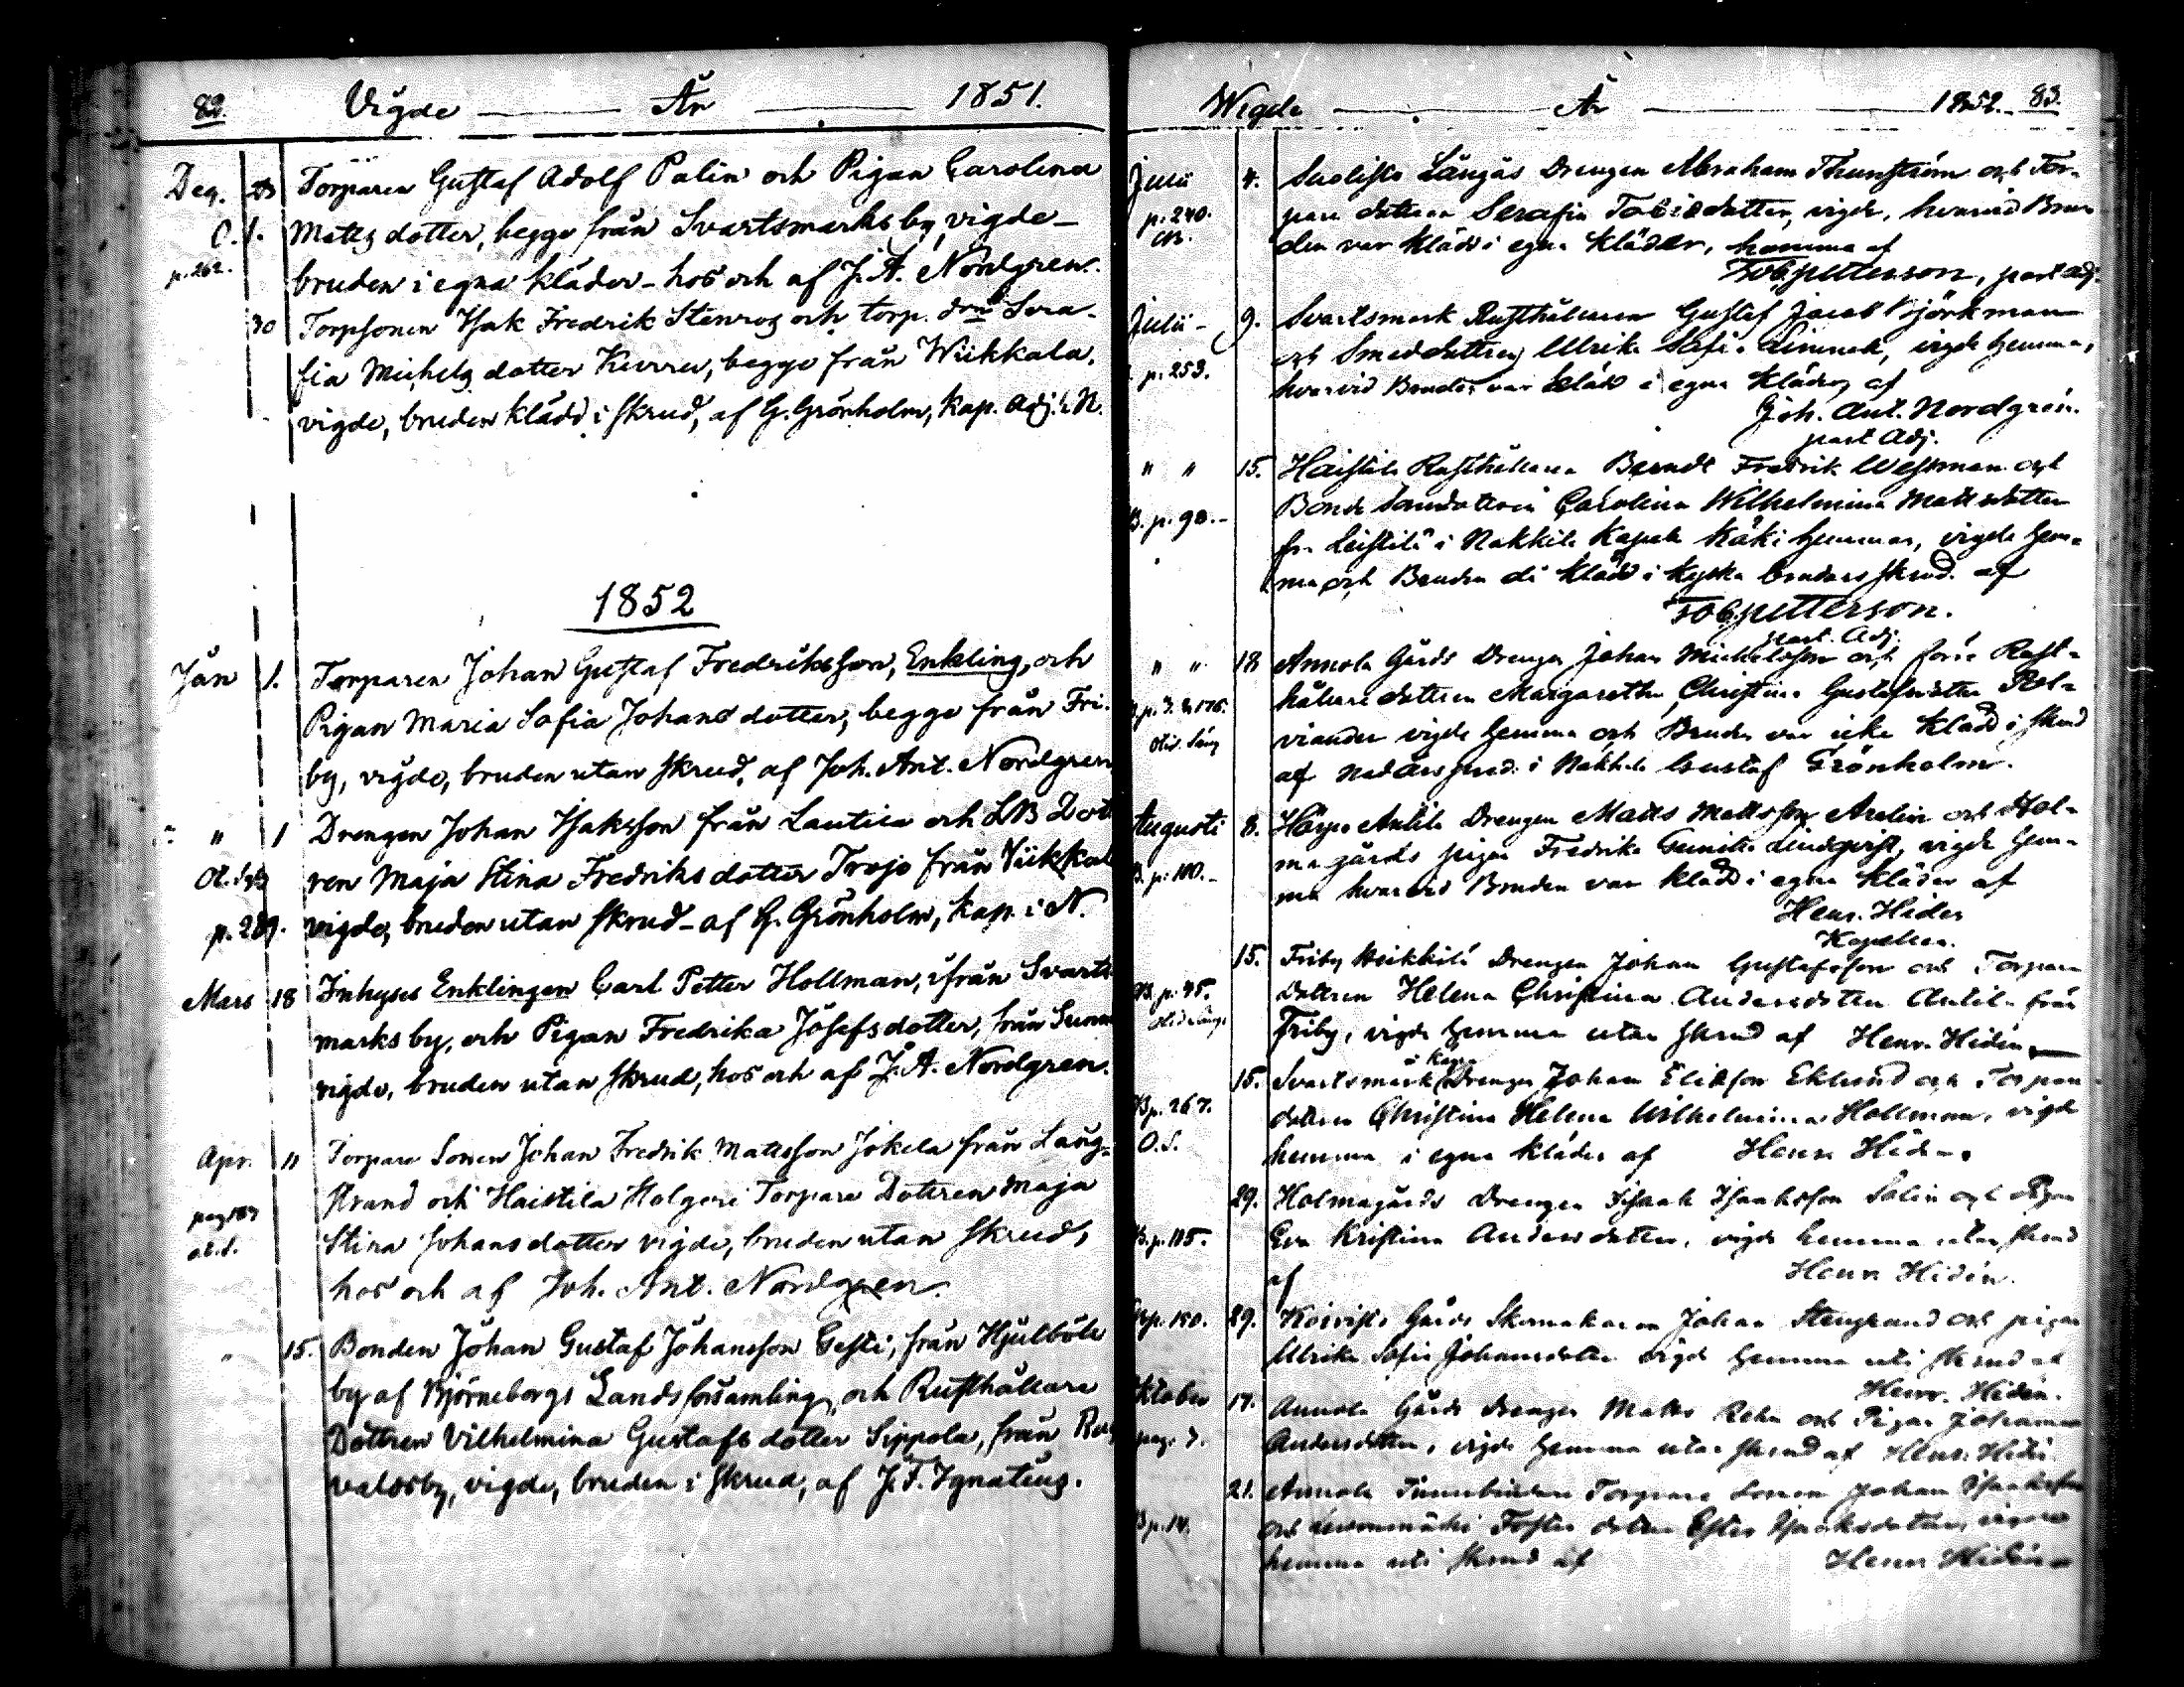 82. Vigde — År — 1851.
Dec. 23 Torparen Gustaf Adolf Palin och Pigan Carolina
O.l. Matts dotter, begge från Svartsmarks by, vigde —
p. 262. bruden i egna kläder — hos och af J. A. Nordgren.
30 Torpsonen Isak Fredrik Stenros och torp. don Sera-
fia Michels dotter, begge från Wiikkala,
vigde, bruden klädd i skrud, af G. Grönholm, Kap. Adj. i N.
1852
Jan 1. Torparen Johan Gustaf Fredriksson, Enkling, och
Pigan Maria Sofia Johans dotter, begge från Fri-
by, vigde, bruden utan skrud, af Joh. Ant. Nordgren
" 1 Drengen Johan Isaksson från Lautila och LB Dot
ren Maja Stina Fredriks dotter Trojo från Viikkal
vigde, bruden utan skrud — af G. Grönholm, Kap. i N.
Mars 18 Inhyses Enklingen Carl Petter Hollman, ifrån Svarts
marks by, och Pigan Fredrika Josefs dotter, från
vigde, bruden utan skrud, hos och af J. A. Nordgren.
Apr. " Torpare Sonen Johan Fredrik Mattsson Jokela från Lång-
strand och Haistila Holgeri Torpare Dottren Maja
Stina Johans dotter vigde, bruden utan skrud,
hos och af Joh. Ant. Nordgren.
" 15. Bonden Johan Gustaf Johansson Gesti, från Hjulböle
by af Björneborgs Landsförsamling, och Rusthållare
Dottren Vilhelmina Gustafs dotter Sippola, från
valdsby, vigde, bruden i skrud, af J. F. Ignatius.
Wigde — År — 1852. 83.
Julii 4. Längäs Drengen Abraham Thunström och Tor-
p. 240. pare dottren Serafia Tobiedotter, vigde, hvarvid Bru-
den var klädd i egna kläder, hemma af
Tob. Petterson, past adj.
Julii 9. Svartsmark Rusthållaren Gustaf Jacob Björkman
och Smeddottren Ulrika Sofia, vigde hemma,
p. 253. hvarvid Bruden var klädd i egna kläder, af
Joh. Ant. Nordgren.
past Adj.
" " 15. Haistila Rusthållaren Berndt Fredrik Westman och
Bonde Carolina Wilhelmina Matts dotter
B. p. 90. fr. Leistilä i Nakkila Kapell hemman, vigde hem-
ma och Bruden klädd i kyska brudars skrud. af
Tob. Petterson.
past. Adj.
" " 18 Annola Gårds Drengen Johan Michelsson och förre Rust-
hållare dottren Margaretha Christina Gustafsdotter Pol-
viander vigde hemma och Bruden var icke klädd i skrud
af i Nakkila Gustaf Grönholm.
Augusti 8. Härpö Antila Drengen Matts Mattsson Arelin och Hol-
magårds pigan Fredrika Lindqvist, vigde hem-
B. p. 100. ma hvarvid Bruden var klädd i egna kläder af
Henr. Hidén
Kapellan.
15. Friby Heikkilä Drengen Johan Gustafsson och Torpare
B. p. 45. dottren Helena Christina Andersdotter Antila från
Friby, vigde hemma utan skrud af Henr. Hidén
15. Svartsmark Drengen Johan Eliasson Eklund och Torpare
B p. 267. dottren Christina Helena Wilhelmina Hollman, vigde
O.S. hemma i egna kläder af Henr Hidén.
29. Holmagårds Drengen Isaak Isaaksson Salin och Pigan
B. p. 115. Eva Kristina Andersdotter, vigde hemma utan skrud
af Henr Hidén.
p. 150. 29. Koivisto Gårds Skomakaren Johan Stengrund och pigan
Ulrika Sofia Johansdotter vigde hemma uti skrud af
Henr. Hidén.
Oktober 17. Annola Gårds Drengen Matts Rehn och Pigan Johanna
pag. 7. Andersdotter, vigde hemma utan skrud af Henr. Hidén
21. Annola Torpare Sonen Johan Isaaksson
B p. 14. och Foster dotter Ester Isaaksdotter, vigde
hemma uti skrud af Henr Hidén